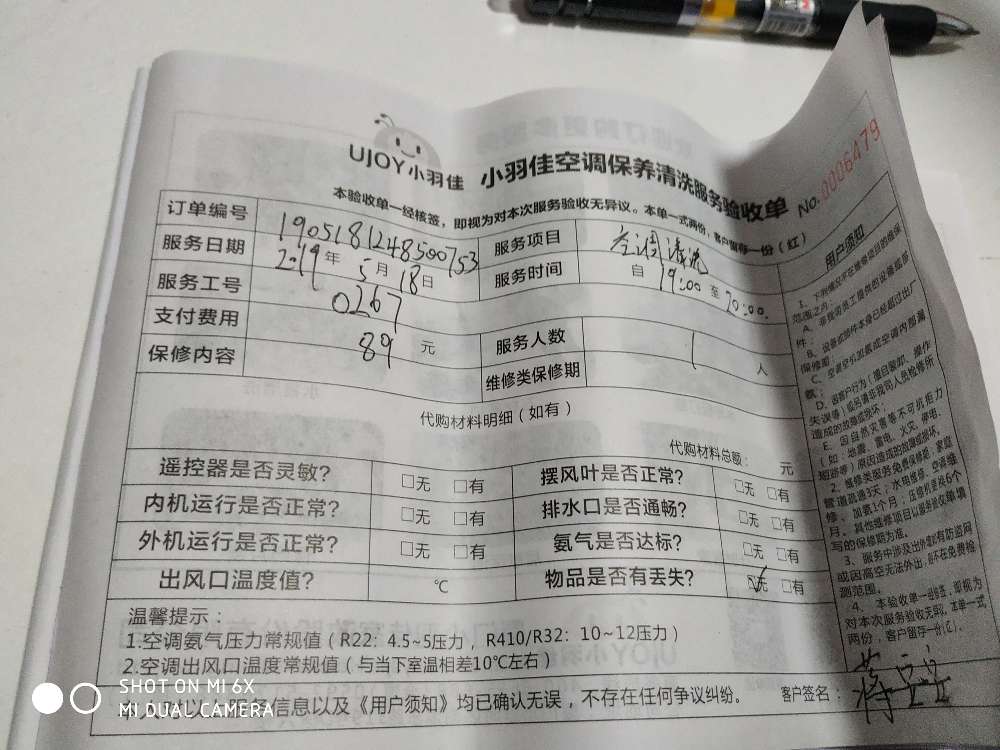 UJOY小羽佳 小羽佳空调保养清洗服务验收单 No. 0006479
本验收单一经核签，即视为对本次服务验收无异议。本单一式两份，客户留存一份（红）
订单编号 190518124850075319 服务项目 空调清洗
服务日期 2019年5月18日 服务时间 自19:00至20:00.
服务工号 0267
支付费用 89元 服务人数 1人
保修内容 维修类保修期
代购材料明细（如有）
代购材料总额： 元
遥控器是否灵敏? □无 □有 摆风叶是否正常? □无 □有
内机运行是否正常? □无 □有 排水口是否通畅? □无 □有
外机运行是否正常? □无 □有 氨气是否达标? □无 □有
出风口温度值? ℃ 物品是否有丢失? ☑无 □有
温馨提示：
1.空调氨气压力常规值（R22：4.5~5压力，R410/R32：10~12压力）
2.空调出风口温度常规值（与当下室温相差10℃左右）
信息以及《用户须知》均已确认无误，不存在任何争议纠纷。 客户签名：
用户须知
1、下列情况不在维修项目的维保
范围之内：
A、非我司员工提供的设备或部
件；
B、设备或部件本身已经超过出厂
保修期；
C、空调空仍氨或空调内部漏
氨；
D、因客户行为（擅自装卸、操作
失误等）或另请非我司人员检修所
造成的故障或损坏；
E、因自然灾害等不可抗拒力
（如：地震、雷电、火灾、停电、
短路等）原因造成的故障或损坏。
2、维修类服务免费保修期：家庭
管道疏通3天，水电维修、空调维
修、加氨1个月，压缩机更换6个
月，其他维修项目以服务验收单填
写的保修期为准。
3、服务中涉及出外墙或有防盗网
或因高空无法外出，则不在免费检
测范围。
4、本验收单一经核签，即视为
对本次服务验收无异议。本单一式
两份，客户留存一份（红）。
SHOT ON MI 6X
MI DUAL CAMERA